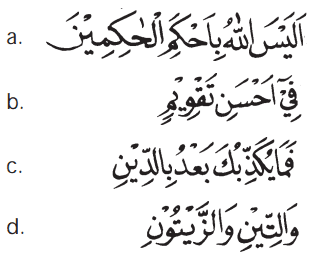 a. اَلَيْسَ اللّٰهُ بِاَحْكَمِ الْحٰكِمِيْنَ
b. فِيْٓ اَحْسَنِ تَقْوِيْمٍ
c. فَمَا يُكَذِّبُكَ بَعْدُ بِالدِّيْنِ
d. وَالتِّيْنِ وَالزَّيْتُوْنِ